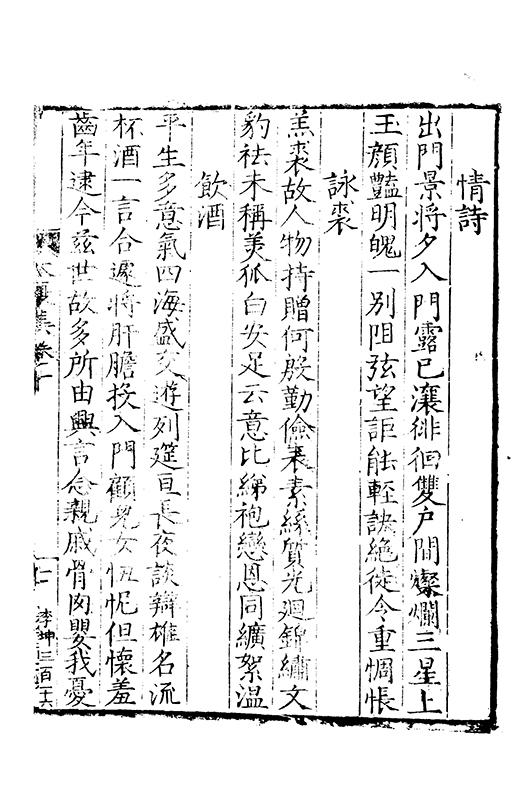 情詩
出門景將夕入門露已瀼徘徊雙户間燦爛三星上
玉顔豔明魄一别阻弦望詎能輕訣絶徒令重惆悵
詠裘
羔裘故人物持贈何殷勤儉表素絲質光廻錦繡文
豹袪未稱美狐白安足云意比綈袍戀恩同纊絮溫
飲酒
平生多意氣四海盛交遊列筵亘長夜談辯雄名流
杯酒一言合遽將肝膽投入門顧兒女忸怩但懷羞
齒年逮今兹世故多所由興言念親戚骨肉嬰我憂
集卷二
李坤三百六